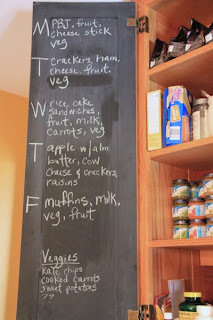 M PBJ, fruit,
cheese stick
veg
T crackers, ham,
cheese, fruit,
veg
W rice cake
sandwiches,
fruit, milk,
carrots, veg
T apple w/alm
butter, cow
cheese & crackers,
raisins
F muffins, milk,
veg, fruit
Veggies
kale chips
cooked carrots
sweet potatoes
??